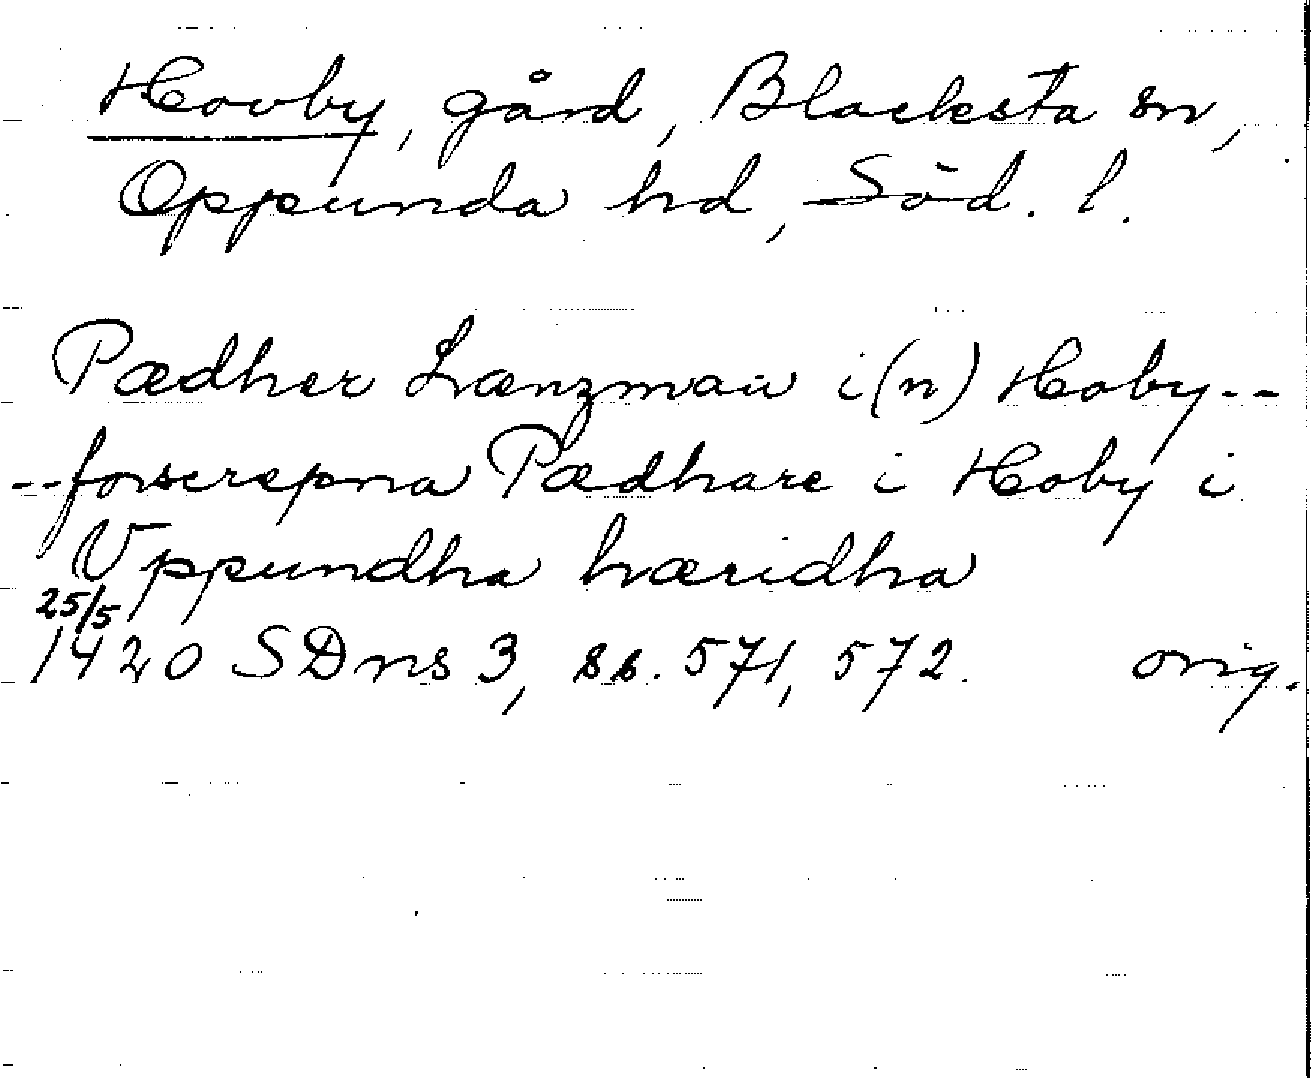 Hovby, gård, Blacksta sn,
Oppunda hd, Söd. l.
Pædher Lænzman i(n) Hoby--
--forscrepna Pædhare i Hoby i
Vppundha hæridha
25/5
1420 SDns 3, ss. 571, 572. orig.